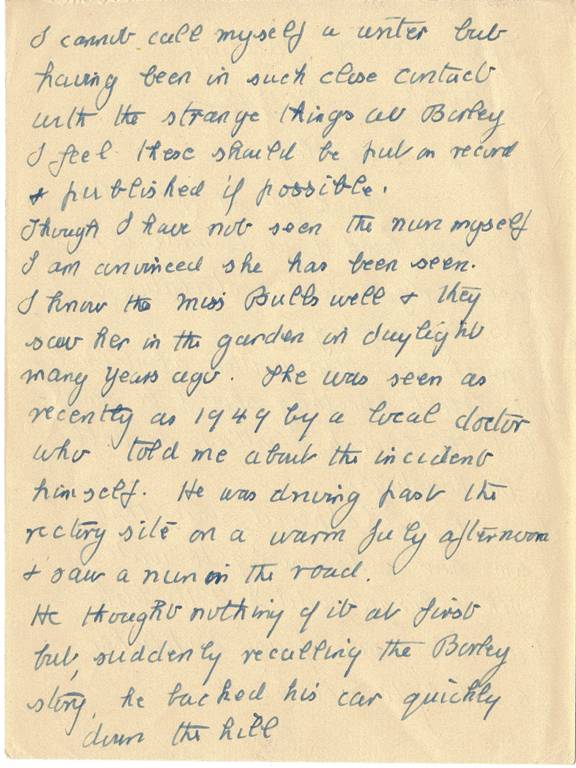 I cannot call myself a writer but
having been in such close contact
with the strange things at Borley
I feel these should be put on record
& published if possible.
Though I have not seen the nun myself
I am convinced she has been seen.
I know the Miss Bulls well & they
saw her in the garden in daylight
many years ago. She was seen as
recently as 1949 by a local doctor
who told me about the incident
himself. He was driving past the
rectory site on a warm July afternoon
& saw a nun in the road.
He thought nothing of it at first
but, suddenly recalling the Borley
story, he backed his car quickly
down the hill